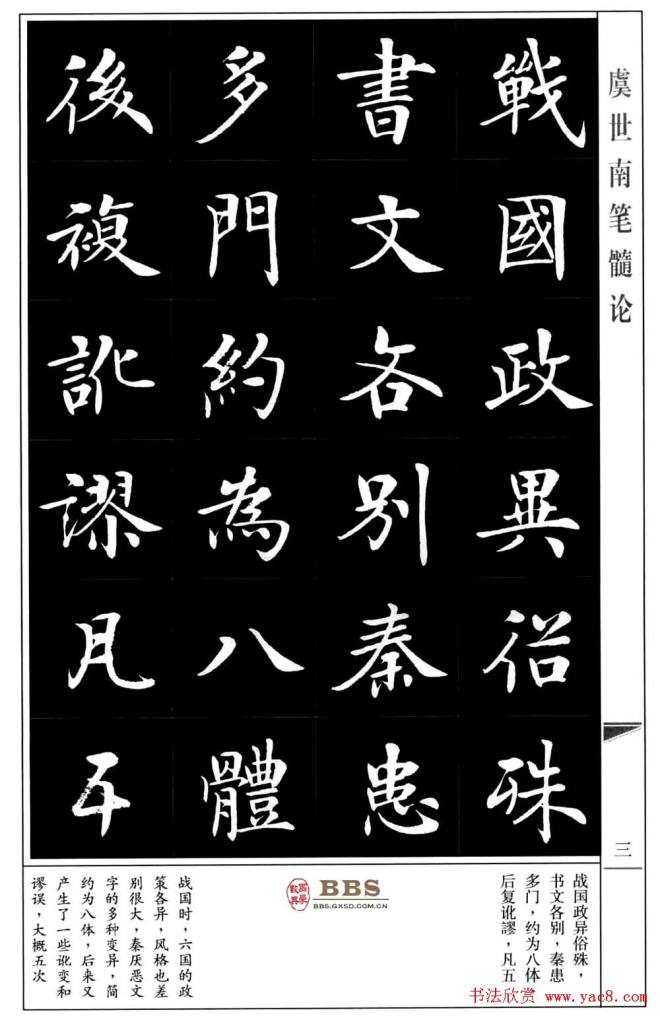 虞世南笔髓论
三
戰國政異俗殊
書文各別秦患
多門約為八體
後複訛謬凡五
战国政异俗殊，
书文各别，秦患
多门，约为八体
后复讹謬，凡五
战国时，六国的政
策各异，风格也差
别很大，秦厌恶文
字的多种变异，简
约为八体，后来又
产生了一些讹变和
谬误，大概五次
BBS
BBS.GXSD.COM.CN
书法欣赏 www.yac8.com